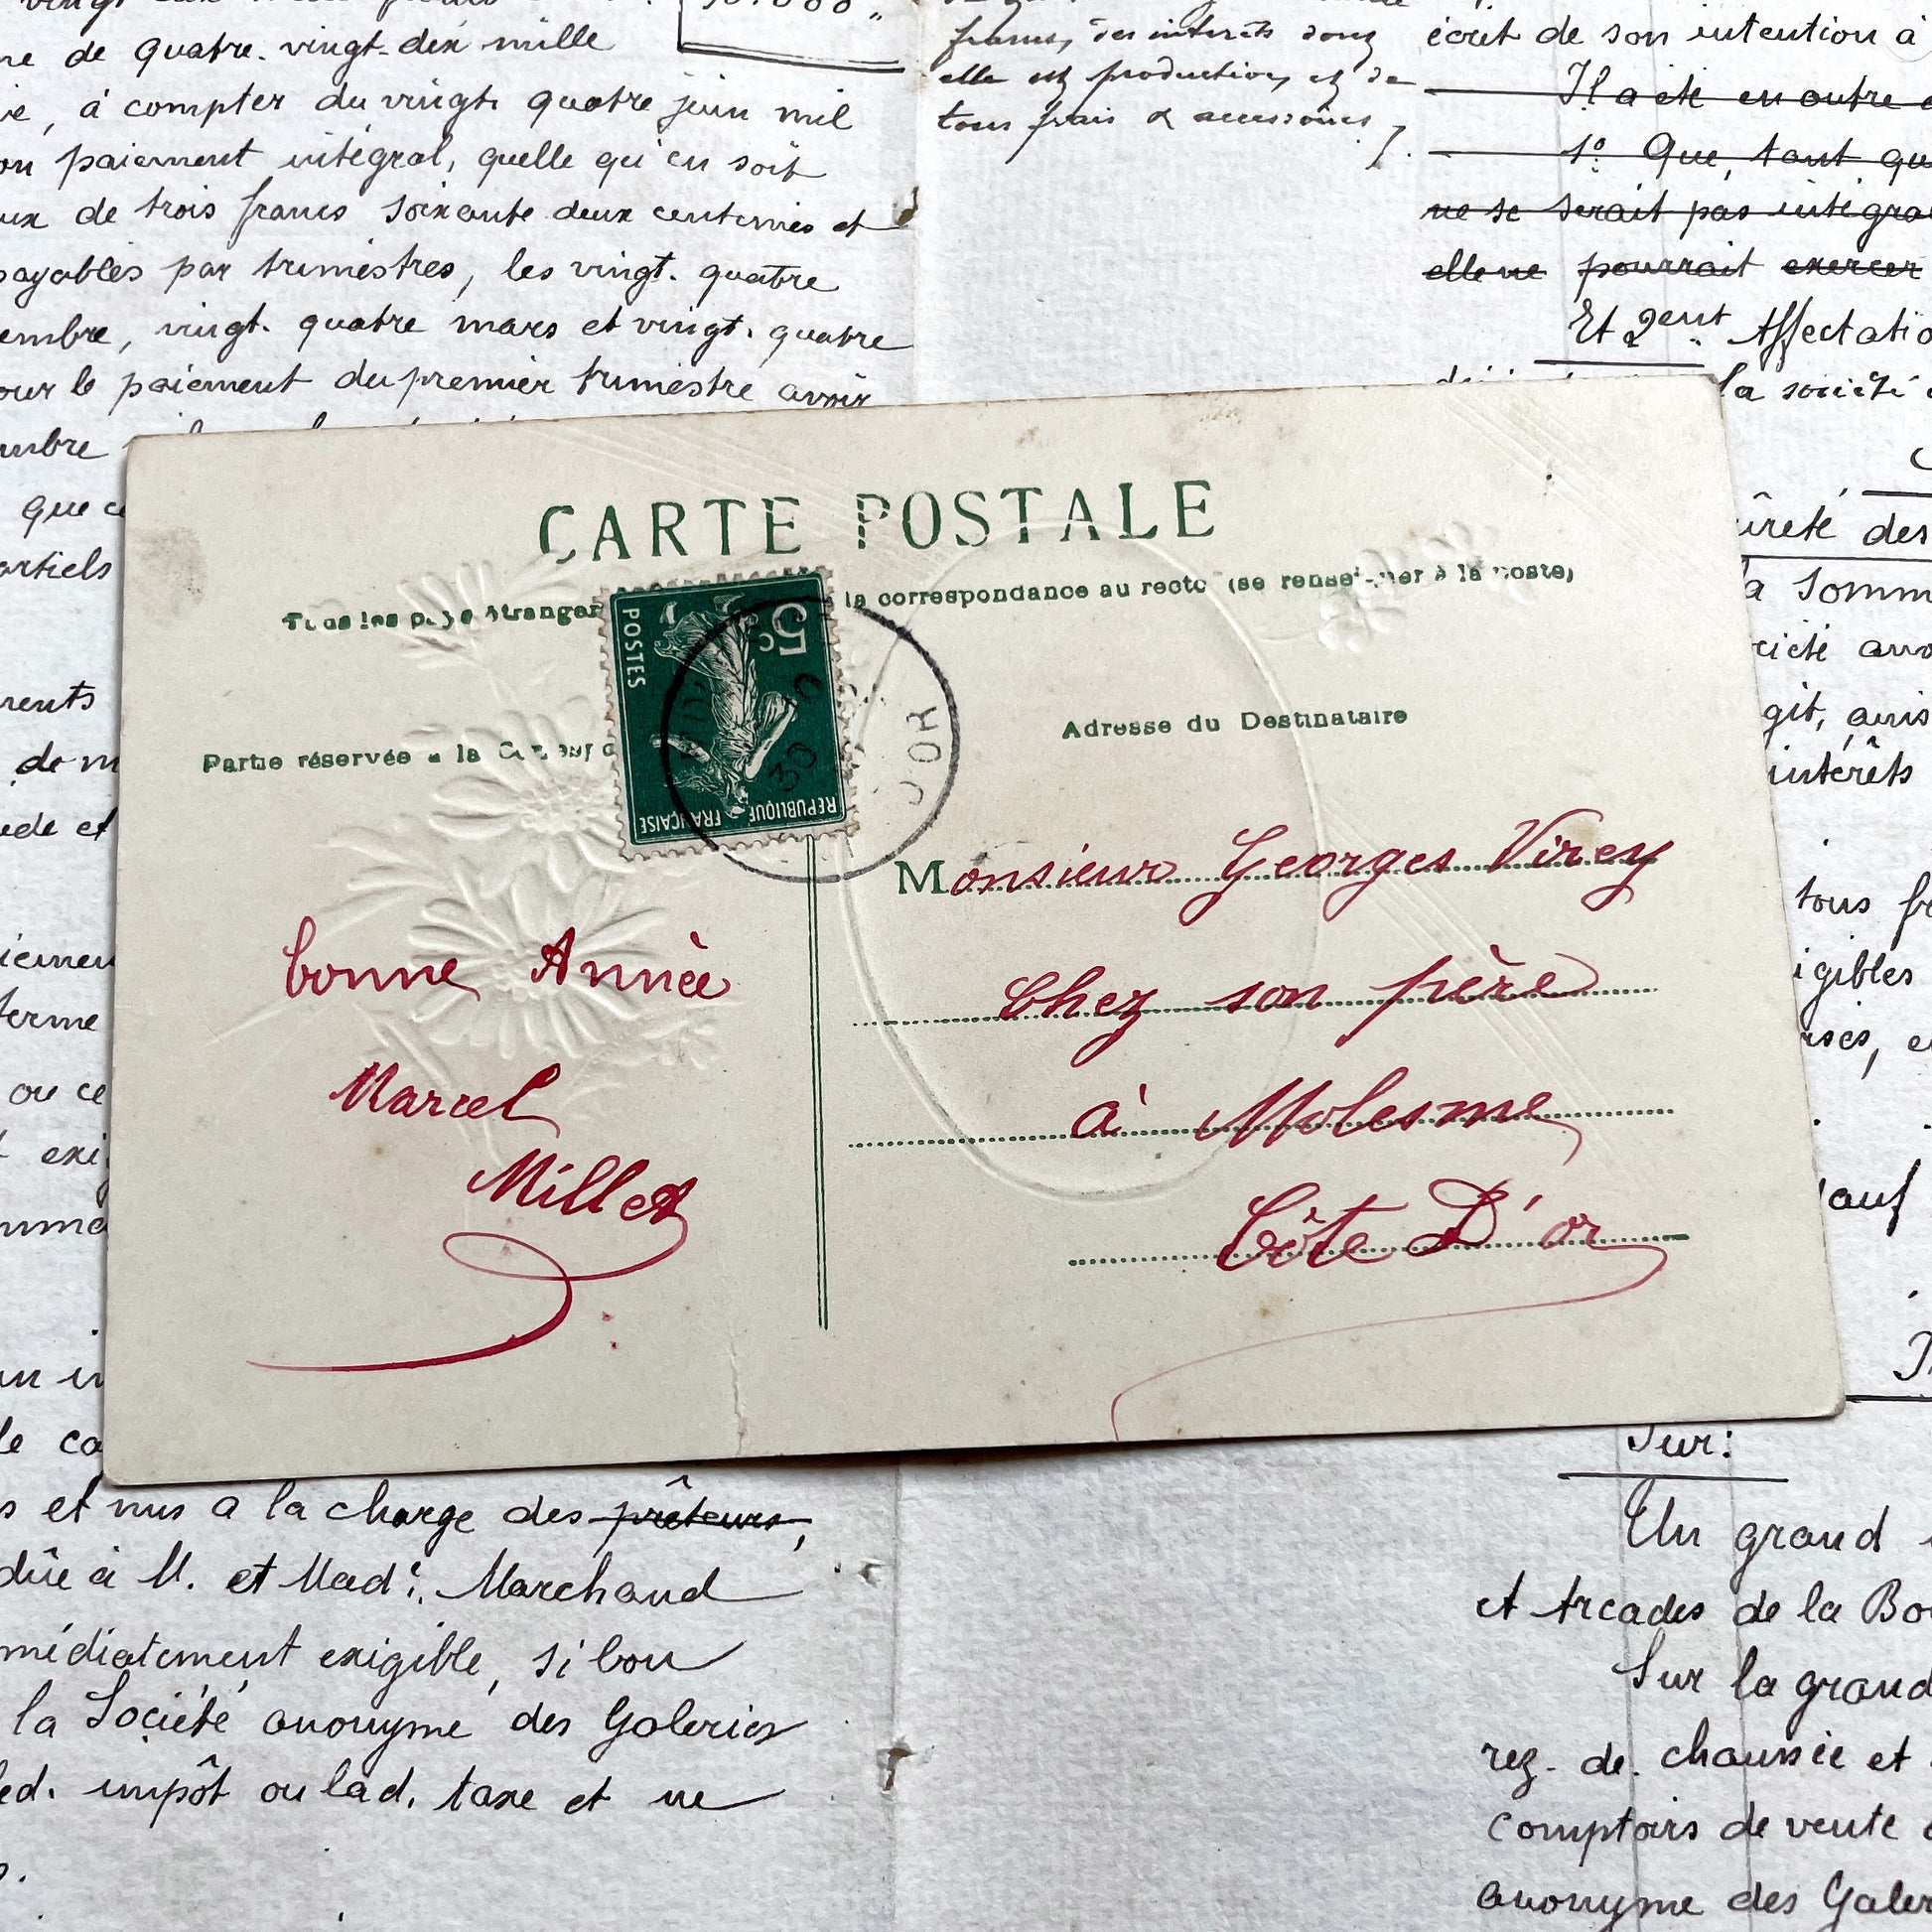 ne de quatre. vingt-dix mille
à compter du vingt. quatre juin mil
paiement intégral, quelle qu'en soit
de trois francs soixante deux centimes et
payables par trimestres, les vingt. quatre
embre, vingt. quatre mars et vingt. quatre
our le paiement du premier trimestre avoir
mbre
que ce
artiels
francs, des intérêts dont
elle est production, et de
tous frais & accessoires
écrit de son intention à
Il a été en outre
1º Que, tant que
ne se serait pas intégral
elle ne pourrait exercer
Et 2ent Affectatio
la société
CARTE POSTALE
Tous les pays étranger la correspondance au recto (se renseigner à la poste)
5c
POSTES
REPUBLIQUE FRANÇAISE
30
D'OR
Partie réservée à la
Adresse du Destinataire
bonne Année
Marcel
Millet
Monsieur Georges Virey
Chez son père
à Molesme
Côte D'or
ûreté des
a somm
ciété ano
git, avis
intérêts
tous
igibles
auf
rents
de m
erme
ou ce
exi
Sur:
et mis à la charge des prêteurs,
dûe à M. et Made. Marchand
médiatement exigible, si bon
la Société anonyme des Galeries
led. impôt ou lad. taxe et ne
Un grand
et Arcades de la Bo
Sur la grand
rez. de. chaussée et
comptoirs de vente
anonyme des Galer